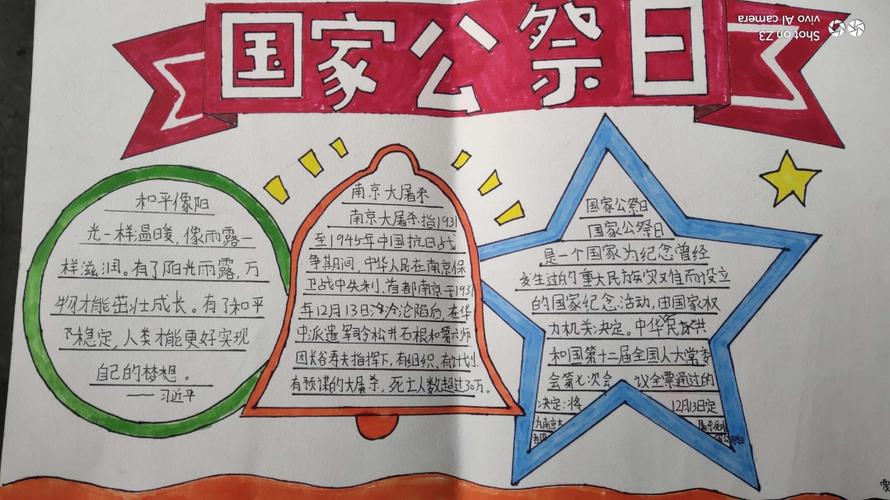 国家公祭日
Shot on Z3
vivo AI camera
和平像阳
光一样温暖，像雨露一
样滋润。有了阳光雨露，万
物才能茁壮成长。有了和平
稳定，人类才能更好实现
自己的梦想。
——习近平
南京大屠杀
南京大屠杀指1931
至1945年中国抗日战
争期间，中华人民在南京保
卫战中失利、首都南京于1931
年12月13日沦陷后，在华
中派遣军司令松井石根和第六师
团长谷寿夫指挥下，有组织、有计划、
有预谋的大屠杀，死亡人数超过30万。
国家公祭日
国家公祭日
是一个国家为纪念曾经
发生过的重大民族灾难而设立
的国家纪念活动，由国家权
力机关决定。中华民族共
和国第十二届全国人大常委
会第七次会 议全票通过的
决定：将 12月13日定
为南京大 屠杀死难